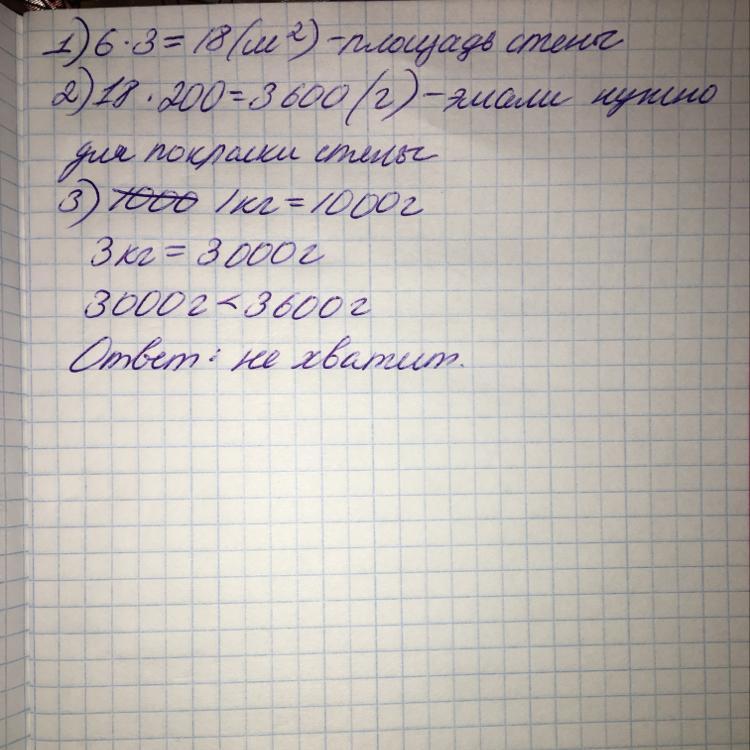 1) 6·3=18(м²)-площадь стены
2) 18·200=3600(г)-эмали нужно
для покраски стены
3) 1000 1кг=1000г
3кг=3000г
3000г<3600г
Ответ: не хватит.